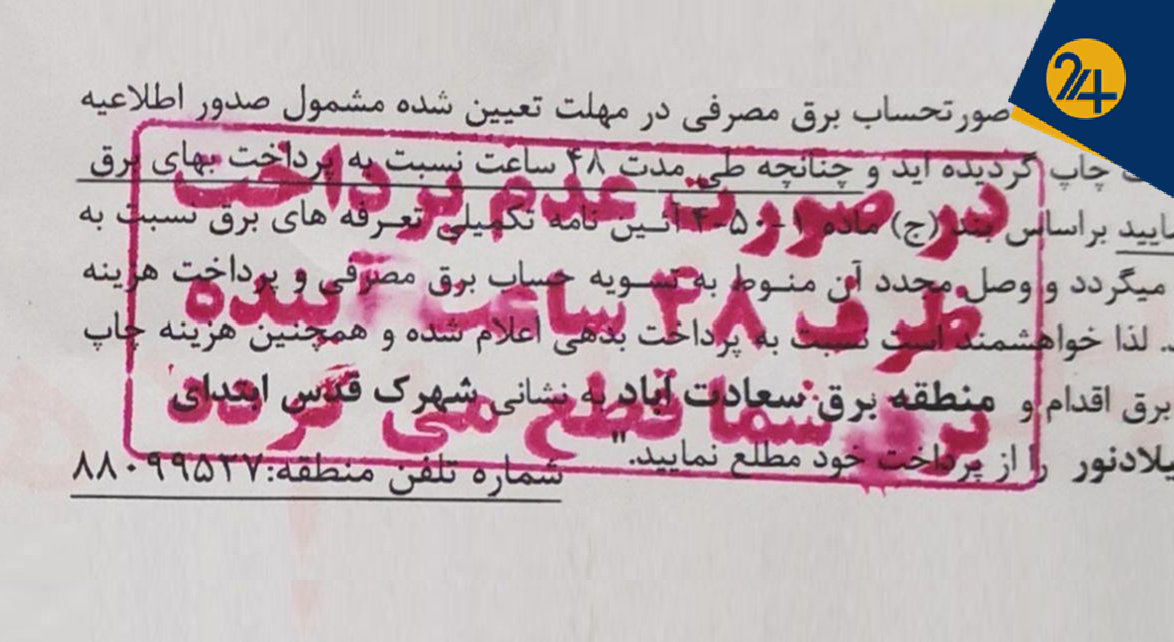 24
صورتحساب برق مصرفی در مهلت تعیین شده مشمول صدور اطلاعیه
چاپ گردیده اید و چنانچه طی مدت ۴۸ ساعت نسبت به پرداخت بهای برق
براساس بند (ج) ماده ۱-۵۰-۴ آئین نامه تکمیلی تعرفه های برق نسبت به
میگردد و وصل مجدد آن منوط به تسویه حساب برق مصرفی و پرداخت هزینه
لذا خواهشمند است نسبت به پرداخت بدهی اعلام شده و همچنین هزینه چاپ
برق اقدام و منطقه برق سعادت آباد به نشانی شهرک قدس ابتدای
یلادنور را از پرداخت خود مطلع نمایید."
شماره تلفن منطقه:۸۸۰۹۹۵۳۷
در صورت عدم پرداخت
ظرف ۴۸ ساعت آینده
برق شما قطع می گردد